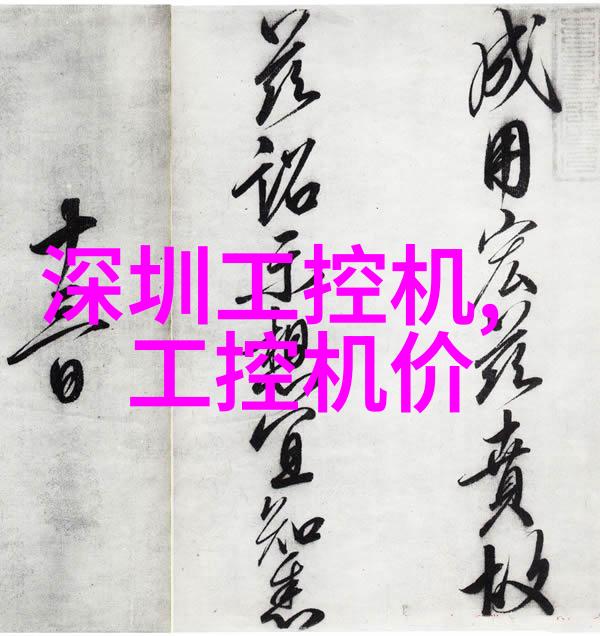 深圳工控机,
工控机价
成用宏茲賁故
茲詔示想宜知悉
十日